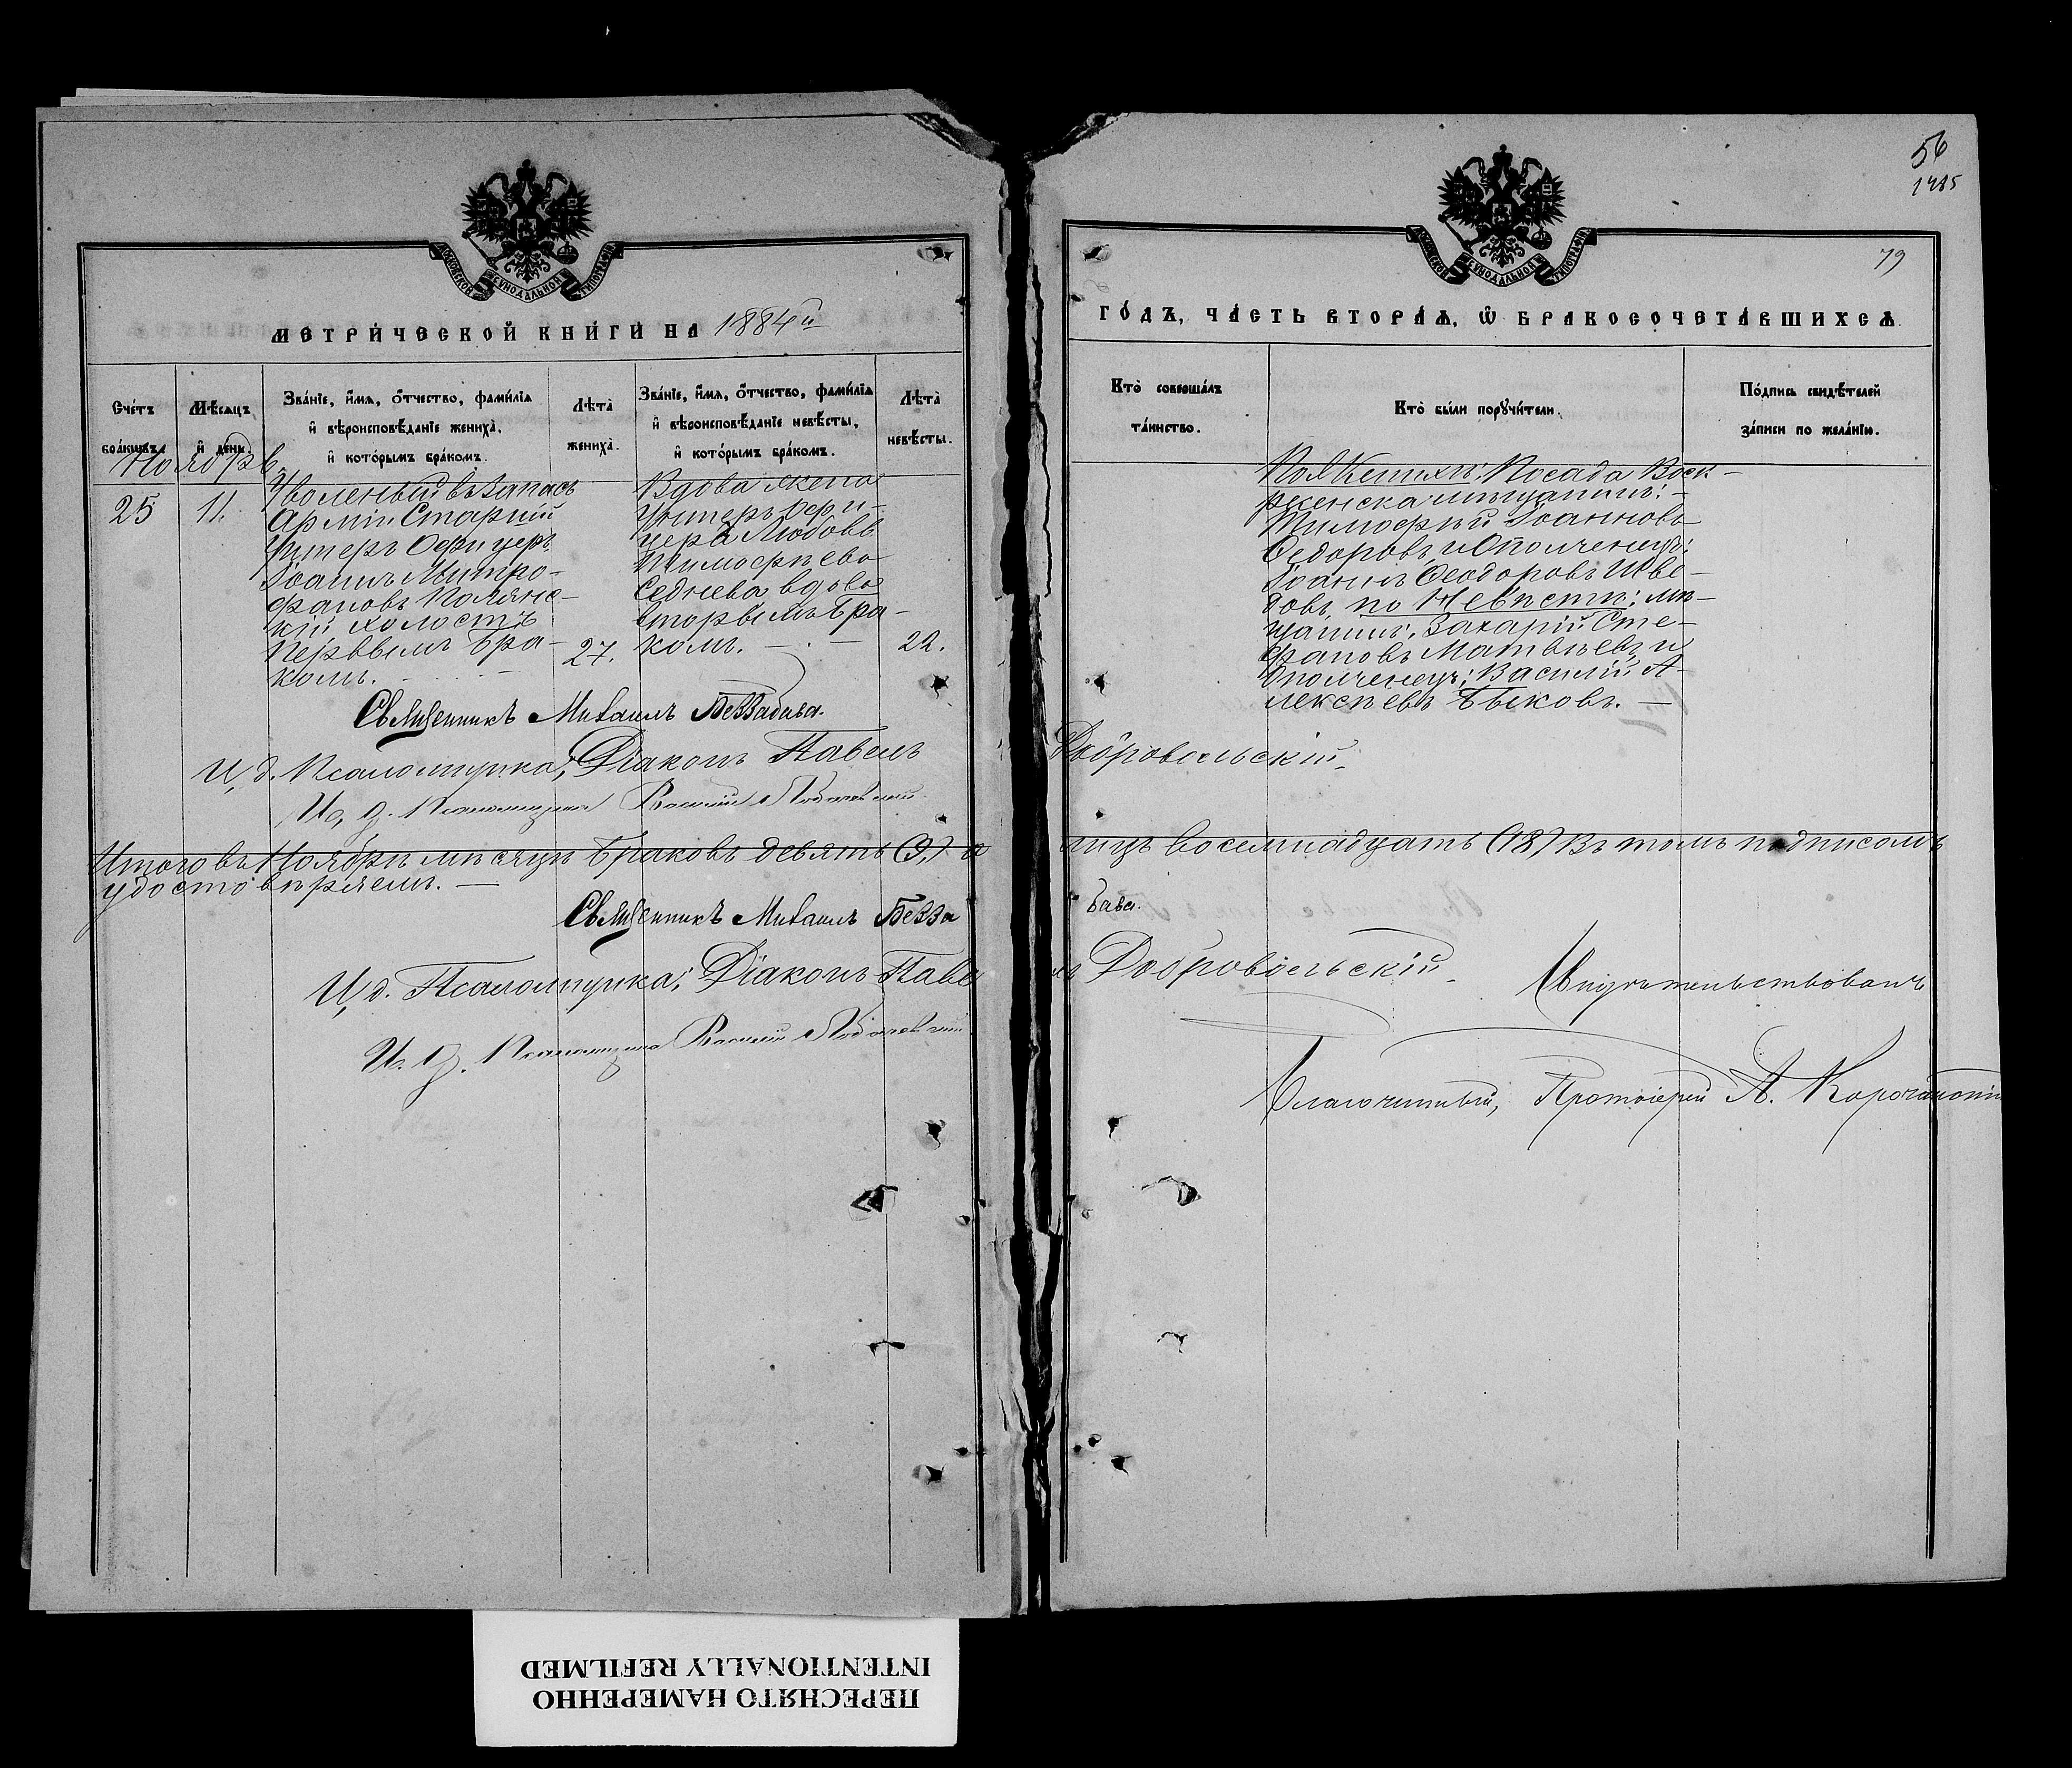 56
1485
79
МОСКОВСКОЙ СѴНОДАЛЬНОЙ ТИПОГРАФІИ
МОСКОВСКОЙ СѴНОДАЛЬНОЙ ТИПОГРАФІИ
МЕТРИ́ЧЕСКОЙ КНИ́ГИ НА 1884й
ГО́ДЪ, ЧА́СТЬ ВТОРА́Ѧ, Ѡ БРАКОСОЧЕТА́ВШИХСѦ.
Сче́тъ
бра́кѡвъ.
Мѣ́сѧцъ
и҆ де́нь.
Зва́нїе, и҆́мѧ, ѻ҆́тчество, фами́лїѧ
и҆ вѣроисповѣ́данїе жениха̀,
и҆ кото́рымъ бра́комъ.
Лѣ́та
жениха̀.
Зва́нїе, и҆́мѧ, ѻ҆́тчество, фами́лїѧ
и҆ вѣроисповѣ́данїе невѣ́сты,
и҆ кото́рымъ бра́комъ.
Лѣ́та
невѣ́сты.
Кто̀ соверша́лъ
та́инство.
Кто̀ бы́ли порꙋчи́тели.
По́дпись свидѣ́телей
за́писи по жела́нїю.
Ноябрь
25
11.
Уволеный въ Запасъ
Арміи Старшій
Унтеръ Офицеръ
Іоаннъ Митро-
фановъ Полянс-
кій холостъ
Первымъ Бра-
комъ.
27.
Вдова жена
Унтеръ Офи-
цера Любовь
Тимофѣева
Седнева вдова
вторымъ Бра-
комъ.
22.
По Женихѣ: Посада Воск-
ресенска мѣщанинъ:
Тимофѣй Іоанновъ
Федоровъ и Ополченецъ:
Іоаннъ Феодоровъ Шве-
довъ по Невѣстѣ: мѣ-
щанинъ: Захарій Сте-
фановъ Матвѣевъ и
Ополченецъ: Василій А-
лексѣевъ Быковъ.
Священникъ Михаилъ Беззабава.
И, д. Псаломщика; Діаконъ Павелъ Добровольскій
И, д. Псаломщика Василій
Итого въ Ноябрѣ мѣсяцѣ Браковъ девять (9,) а лицъ восемнадцать (18) Въ томъ подписомъ
удостовѣряемъ.
Священникъ Михаилъ Беззабава.
И, д. Псаломщика; Діаконъ Павелъ Добровольскій
И. д. Псаломщика Василій
Свидѣтельствовалъ
Благочинный, Протоіерей А.
ПЕРЕСНЯТО НАМЕРЕННО
INTENTIONALLY REFILMED